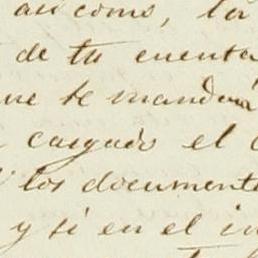 asi como, la
de tu cuenta
te mandará
cargado el
los documento
y si en el in